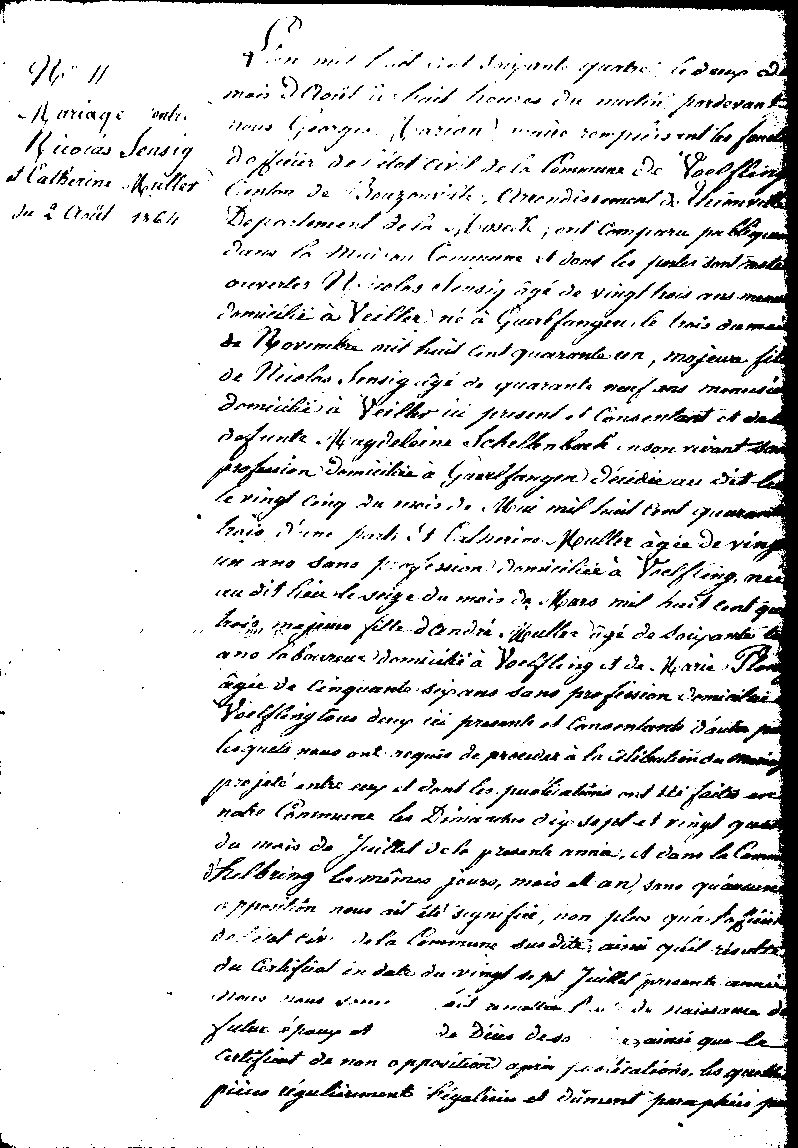 N° 11
Mariage entre
Nicolas Sensig
et Catherine Muller
du 2 Août 1864
L'an mil huit cent soixante quatre, le deux du
mois d'Août à huit heures du matin, pardevant
nous Georges Marion, maire remplissant les fonct
d'officier de l'état civil de la Commune de Voelfling
Canton de Bouzonville, Arrondissement de Thionville
Département de la Moselle, ont comparu publiquem
dans la Maison Commune et dont les portes sont restées
ouvertes Nicolas Sensig âgé de vingt trois ans
domicilié à Veiller né à Guerlfangen, le trois du mois
de Novembre mil huit cent quarante un, majeur fils
de Nicolas Sensig âgé de quarante neuf ans
domicilié à Veiller ici présent et Consentant et de la
défunte Magdeleine Schellenbach en son vivant sans
profession domiciliée à Guerlfangen décédée au dit lieu
le vingt cinq du mois de Mai mil huit cent quarante
trois d'une part; Et Catherine Muller âgée de vingt
un ans sans profession domiciliée à Voelfling, née
au dit lieu le seize du mois de Mars mil huit cent qua
trois, majeure fille d'André Muller âgé de soixante
ans laboureur domicilié à Voelfling et de Marie
âgée de cinquante six ans sans profession domiciliée à
Voelfling tous deux ici présents et Consentants d'autre part
lesquels nous ont requis de procéder à la célébration du mariage
projeté entre eux et dont les publications ont été faites en
notre Commune les Dimanches dix sept et vingt quatre
du mois de Juillet de la présente année, et dans la Comm
d'helbring les mêmes jours, mois et an, sans qu'aucune
opposition nous ait été signifiée, non plus qu'à l'officier
de l'état civ de la Commune susdite, ainsi qu'il résulte
du Certificat en date du vingt sept Juillet présente année
nous nous ait remettre de naissance du
futur époux et de Décès de so ainsi que le
certificat de non opposition après publications, les quelles
pièces régulièrement légalisées et dûment paraphées par